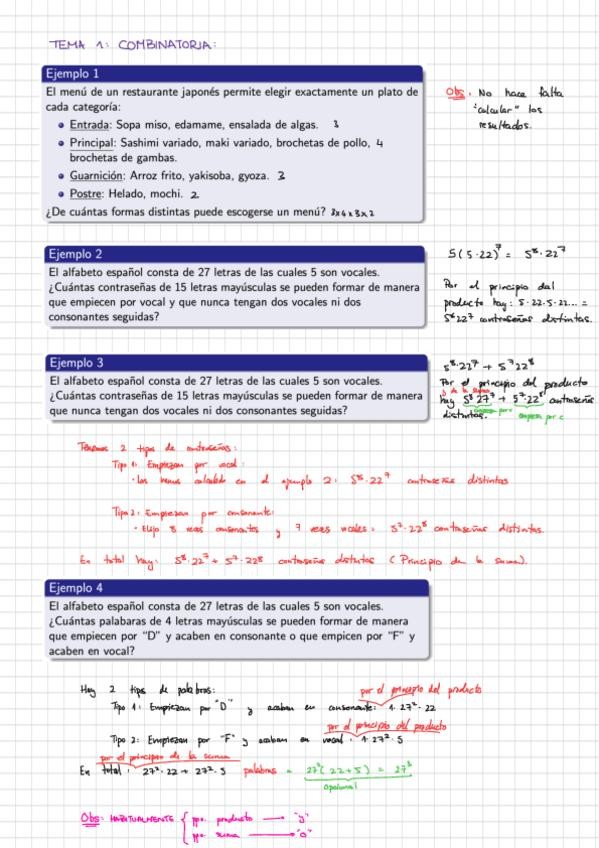 TEMA 1: COMBINATORIA:
Ejemplo 1
El menú de un restaurante japonés permite elegir exactamente un plato de
cada categoría:
Entrada: Sopa miso, edamame, ensalada de algas. 3
Principal: Sashimi variado, maki variado, brochetas de pollo, 4
brochetas de gambas.
Guarnición: Arroz frito, yakisoba, gyoza. 3
Postre: Helado, mochi. 2
¿De cuántas formas distintas puede escogerse un menú? 3x4x3x2
Obs. No hace falta
"calcular" los
resultados.
Ejemplo 2
El alfabeto español consta de 27 letras de las cuales 5 son vocales.
¿Cuántas contraseñas de 15 letras mayúsculas se pueden formar de manera
que empiecen por vocal y que nunca tengan dos vocales ni dos
consonantes seguidas?
5(5·22)⁷ = 5⁸·22⁷
Por el principio del
producto hay: 5·22·5·22... =
5⁸22⁷ contraseñas distintas.
Ejemplo 3
El alfabeto español consta de 27 letras de las cuales 5 son vocales.
¿Cuántas contraseñas de 15 letras mayúsculas se pueden formar de manera
que nunca tengan dos vocales ni dos consonantes seguidas?
5⁸·22⁷ + 5⁷22⁸
Por el principio del producto
y de la suma
hay 5⁸·27⁷ + 5⁷·22⁸ contraseñas
distintas. empieza por v empieza por c
Tenemos 2 tipos de contraseñas:
Tipo 1: Empiezan por vocal:
· Las hemos calculado en el ejemplo 2: 5⁸·22⁷ contraseñas distintas
Tipo 2: Empiezan por consonante:
· Elijo 8 veces consonantes y 7 veces vocales = 5⁷·22⁸ contraseñas distintas.
En total hay: 5⁸·22⁷ + 5⁷·22⁸ contraseñas distintas (Principio de la suma).
Ejemplo 4
El alfabeto español consta de 27 letras de las cuales 5 son vocales.
¿Cuántas palabaras de 4 letras mayúsculas se pueden formar de manera
que empiecen por "D" y acaben en consonante o que empicen por "F" y
acaben en vocal?
Hay 2 tipos de palabras: por el principio del producto
Tipo 1: Empiezan por "D" y acaban en consonante: 1·27²·22
por el principio del producto
Tipo 2: Empiezan por "F" y acaban en vocal: 1·27²·5
por el principio de la suma
En total: 27²·22 + 27²·5 palabras = 27²(22+5) = 27³
opcional
Obs: HABITUALMENTE { ppo. producto → "y"
ppo. suma → "o"